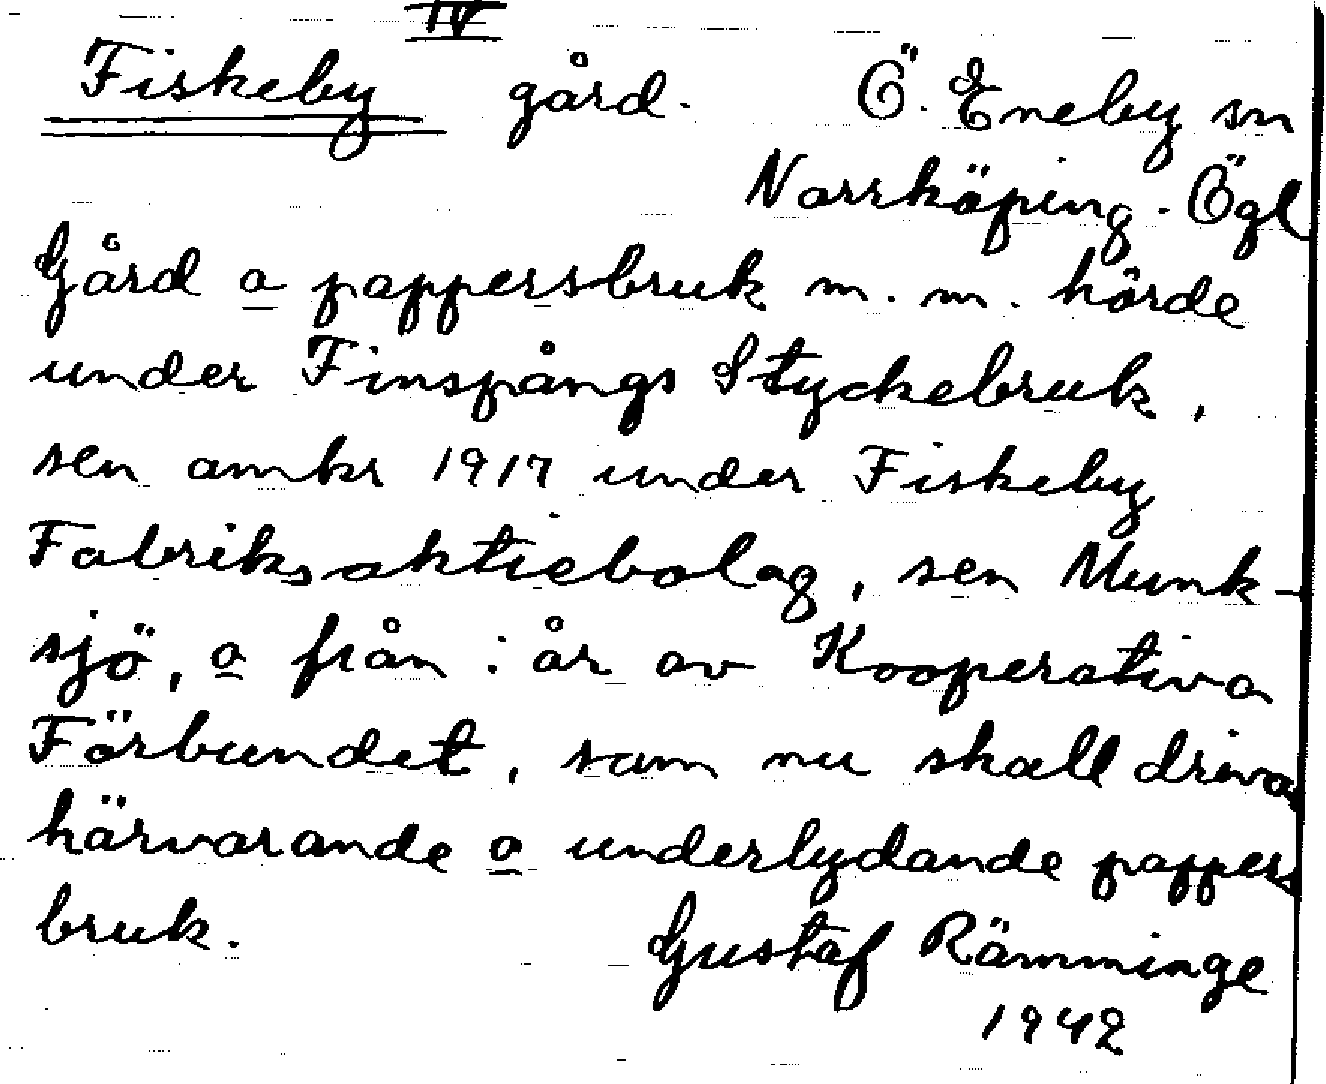 IV
Fiskeby gård. Ö. Eneby sn
Norrköping. Ögl
Gård o pappersbruk m.m. hörde
under Finspångs Styckebruk,
sen omkr 1917 under Fiskeby
Fabriksaktiebolag, sen Munk-
sjö, o från i år av Kooperativa
Förbundet, som nu skall driva
härvarande o underlydande pappers
bruk.
Gustaf Rämminge
1942